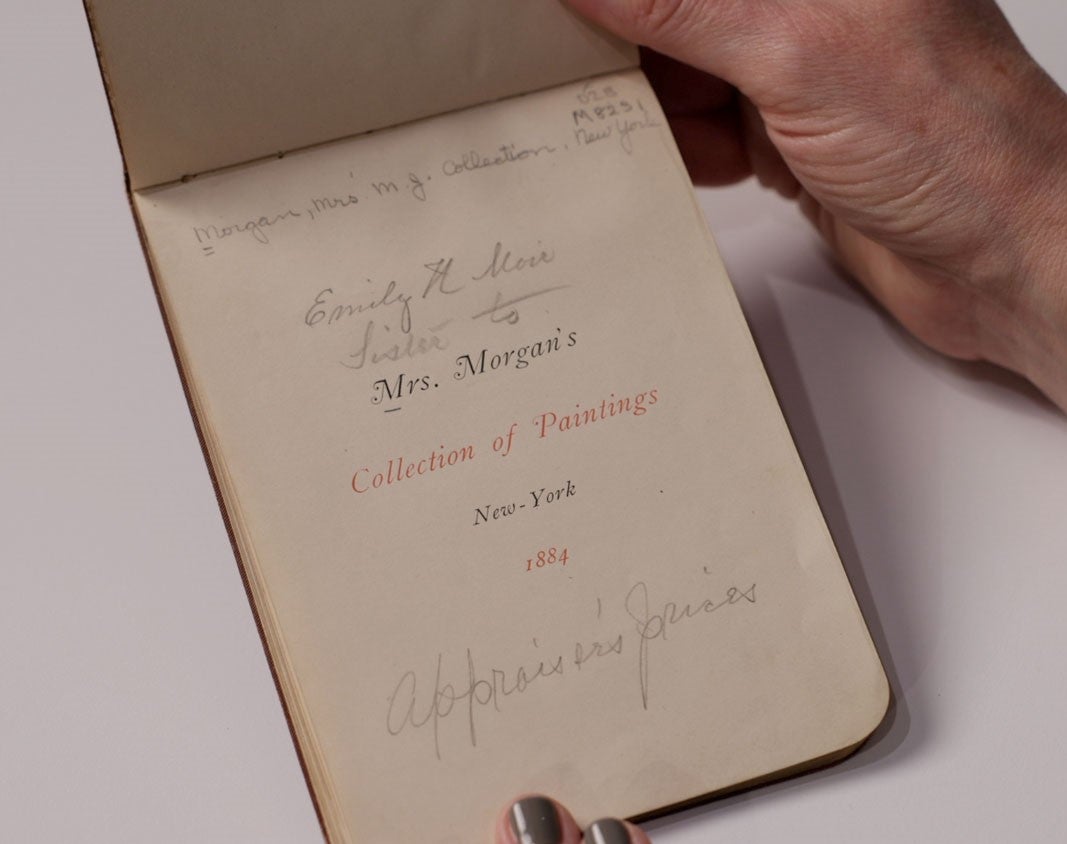 M8291
New York
Morgan, Mrs. M. J. Collection,
Emily H Moir
Sister to
Mrs. Morgan's
Collection of Paintings
New-York
1884
Appraiser's prices